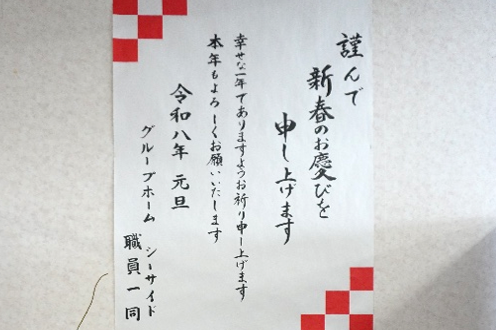 謹んで
新春のお慶びを
申し上げます
幸せな一年でありますようお祈り申し上げます
本年もよろしくお願いいたします
令和八年 元旦
グループホーム シーサイド
職員一同